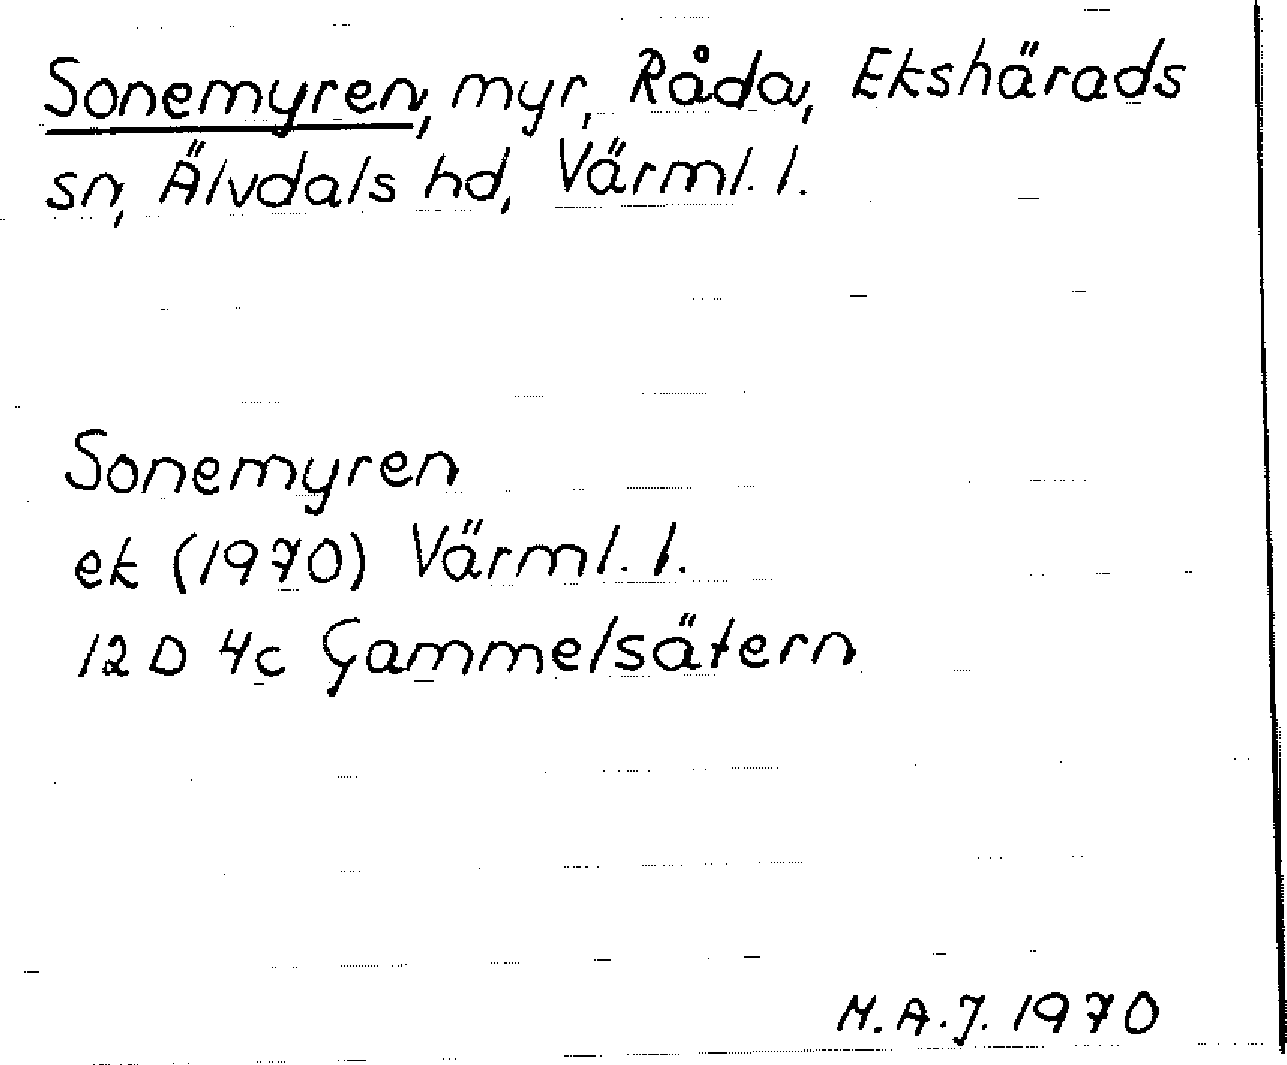 Sonemyren, myr, Råda, Ekshärads
sn, Älvdals hd, Värml. l.
Sonemyren
ek (1970) Värml. l.
12 D 4c Gammelsätern
M.A.J. 1970